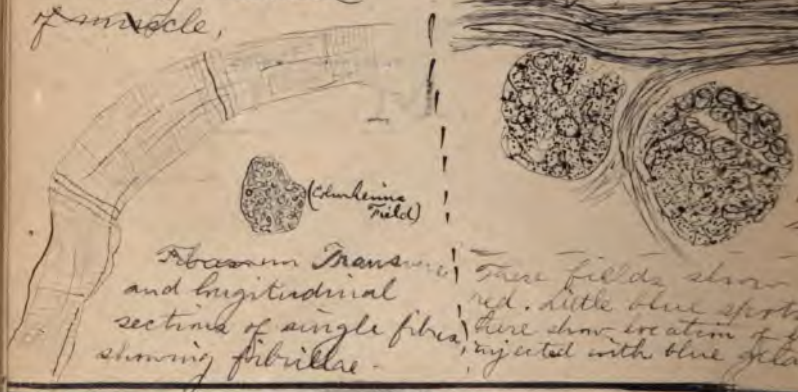 of muscle,
(Cohnheims
Field)
in Transverse
and longitudinal
sections of single fibres,
showing fibrillae.
These fields show
red. Little blue spots
here show location of
injected with blue